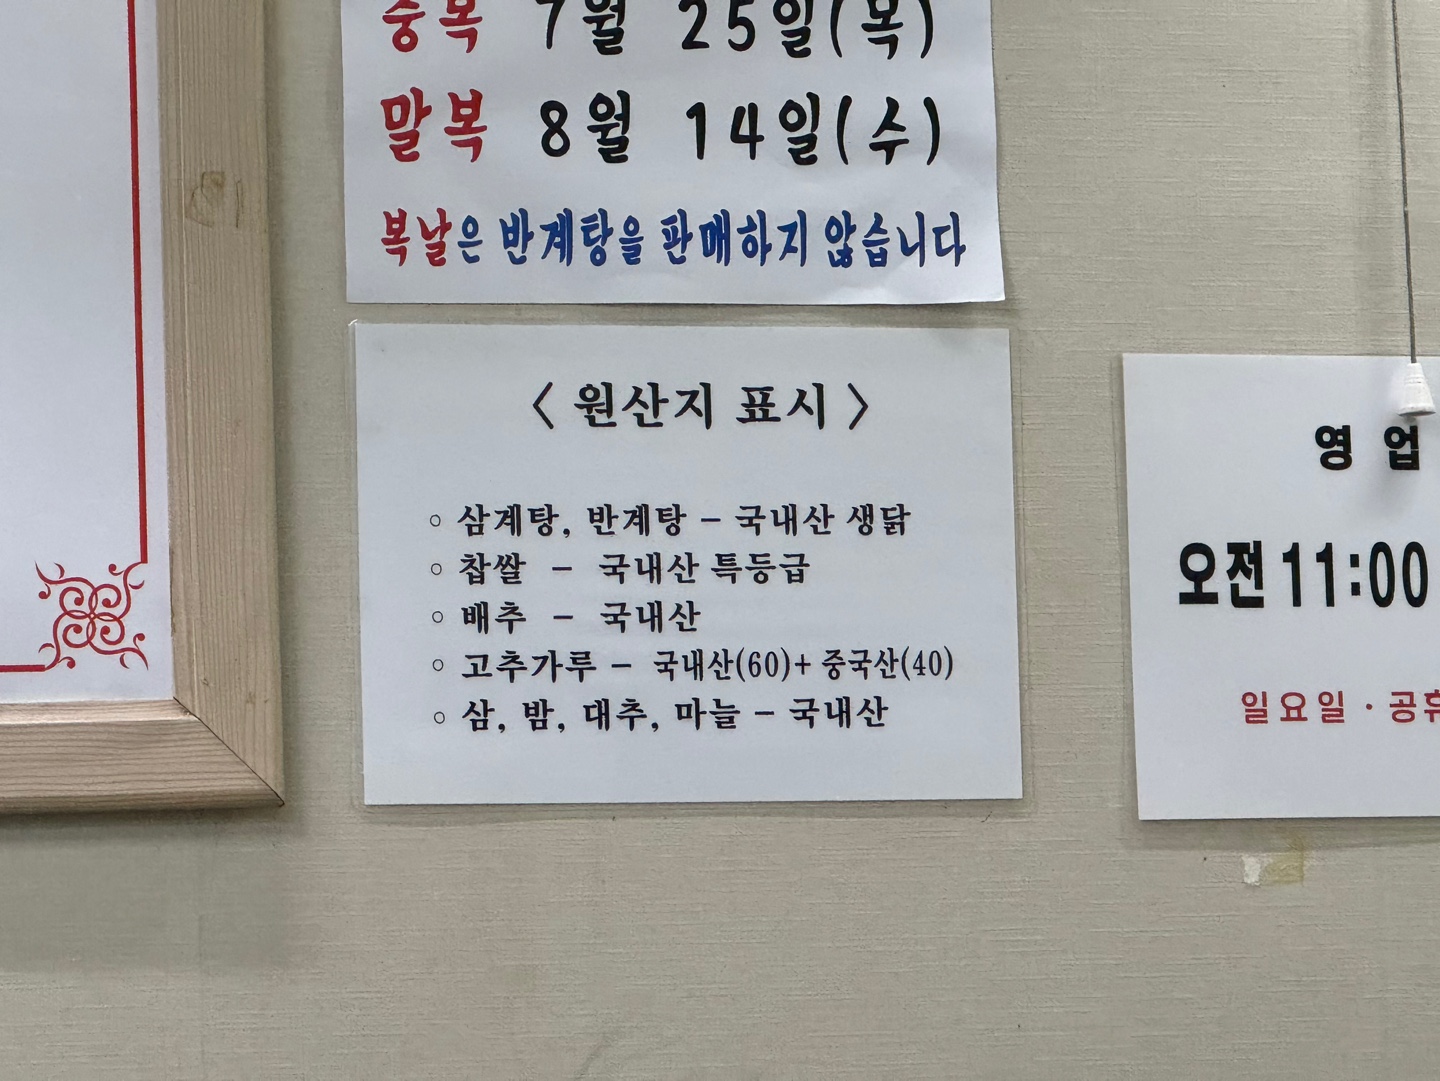 중복 7월 25일(목)
말복 8월 14일(수)
복날은 반계탕을 판매하지 않습니다
〈 원산지 표시 〉
○ 삼계탕, 반계탕 – 국내산 생닭
○ 찹쌀 – 국내산 특등급
○ 배추 – 국내산
○ 고추가루 – 국내산(60)+ 중국산(40)
○ 삼, 밤, 대추, 마늘 – 국내산
영 업
오전 11:00
일요일 · 공휴